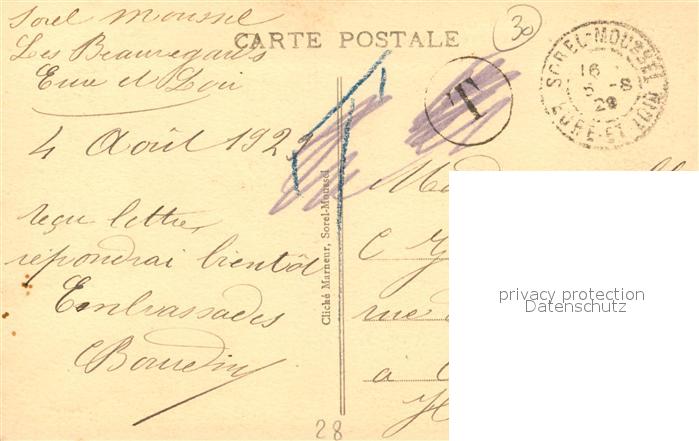 Sorel Moussel
Les Beauregards
Eure et Loir
CARTE POSTALE
30
SOREL-MOUSSEL
16
5 -8
29
EURE-ET-LOIR
T
4 Août 1929
reçu lettre,
répondrai bientôt
Embrassades
Cliché Marneur, Sorel-Moussel
rue
a
28
privacy protection
Datenschutz